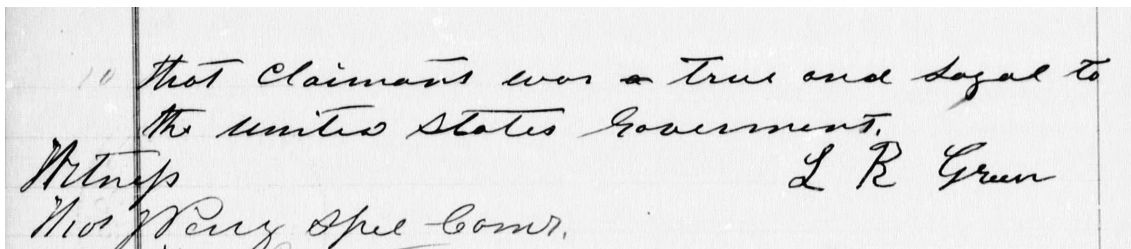 10 that Claimants was a true and Loyal to
the united States Goverment.
Witness L R Green
Thos J Perry Spel Comr.